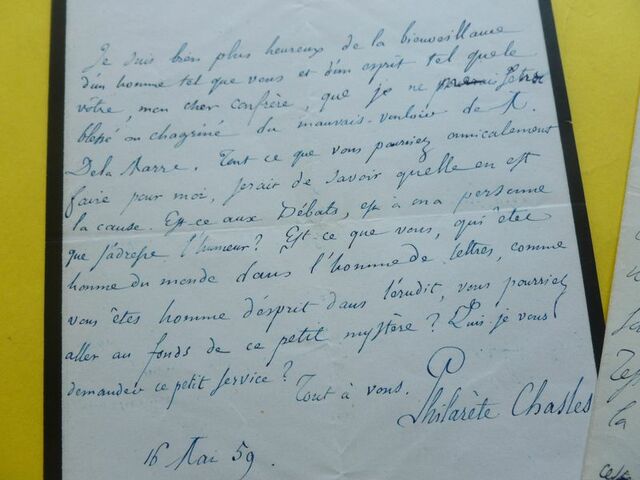 Je suis bien plus heureux de la bienveillance
d'un homme tel que vous et d'un esprit tel que le
vôtre, mon cher confrère, que je ne puis être
blessé ou chagriné du mauvais-vouloir de M.
De la Barre. Tout ce que vous pourriez amicalement
faire pour moi, serait de savoir quelle en est
la cause. Est-ce aux Débats, est à ma personne
que s'adresse l'humeur? Est-ce que vous, qui êtes
homme du monde dans l'homme de lettres, comme
vous êtes homme d'esprit dans l'érudit, vous pourriez
aller au fonds de ce petit mystère? Puis je vous
demander ce petit service?
Tout à vous.
Philarète Chasles
16 Mai 59.
la